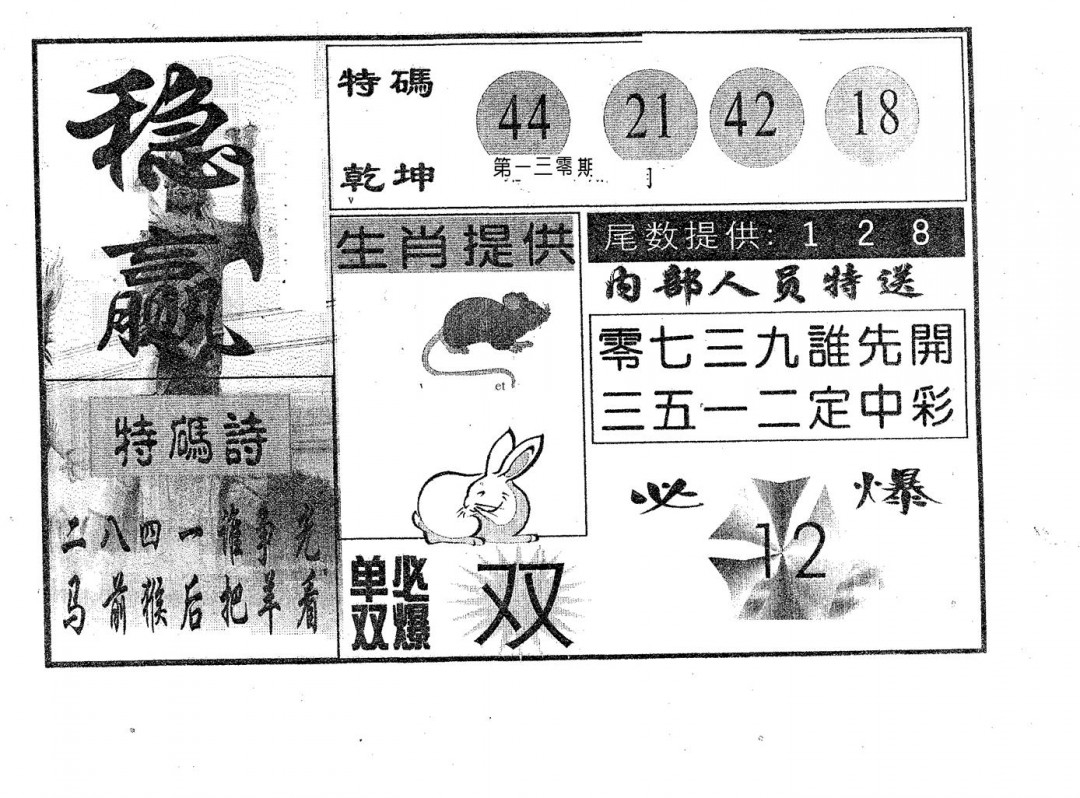 稳
赢
特碼
乾坤
44 21 42 18
第一三零期
生肖提供
et
尾数提供: 1 2 8
内部人员特送
零七三九誰先開
三五一二定中彩
特碼詩
二八四一谁争先
马前猴后把羊看
单必
双爆
双
必爆
12